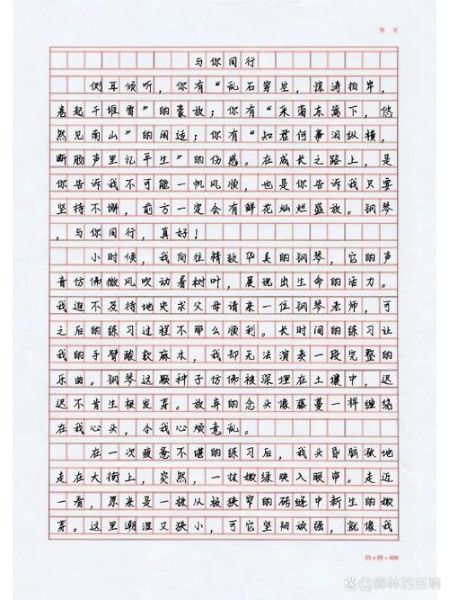 与你同行
侧耳倾听，你有“乱石穿空，惊涛拍岸，
卷起千堆雪”的豪放；你有“采菊东篱下，悠
然见南山”的闲适；你有“知君何事泪纵横，
断肠声里忆平生”的伤感。在成长之路上，是
你告诉我不可能一帆风顺，也是你告诉我只要
坚持不懈，前方一定会有鲜花灿烂盛放。钢琴
，与你同行，真好！
小时候，我向往精致华美的钢琴，它的声
音仿佛微风吹动着树叶，展现出生命的活力。
我迫不及待地央求父母请来一位钢琴老师，可
之后的练习过程不那么顺利。长时间的练习让
我的手臂酸软麻木，我却无法演奏一段完整的
乐曲。钢琴这颗种子仿佛被深埋在土壤中，迟
迟不肯生根发芽。放弃的念头像藤蔓一样缠绕
在我心头，令我心烦意乱。
在一次疲惫不堪的练习后，我头昏脑胀地
走在大街上，突然，一抹嫩绿映入眼帘。走近
一看，原来是一株从被狭窄的砖缝中新生的嫩
芽。这里潮湿又狭小，可它坚韧顽强，就像我
20×20=400